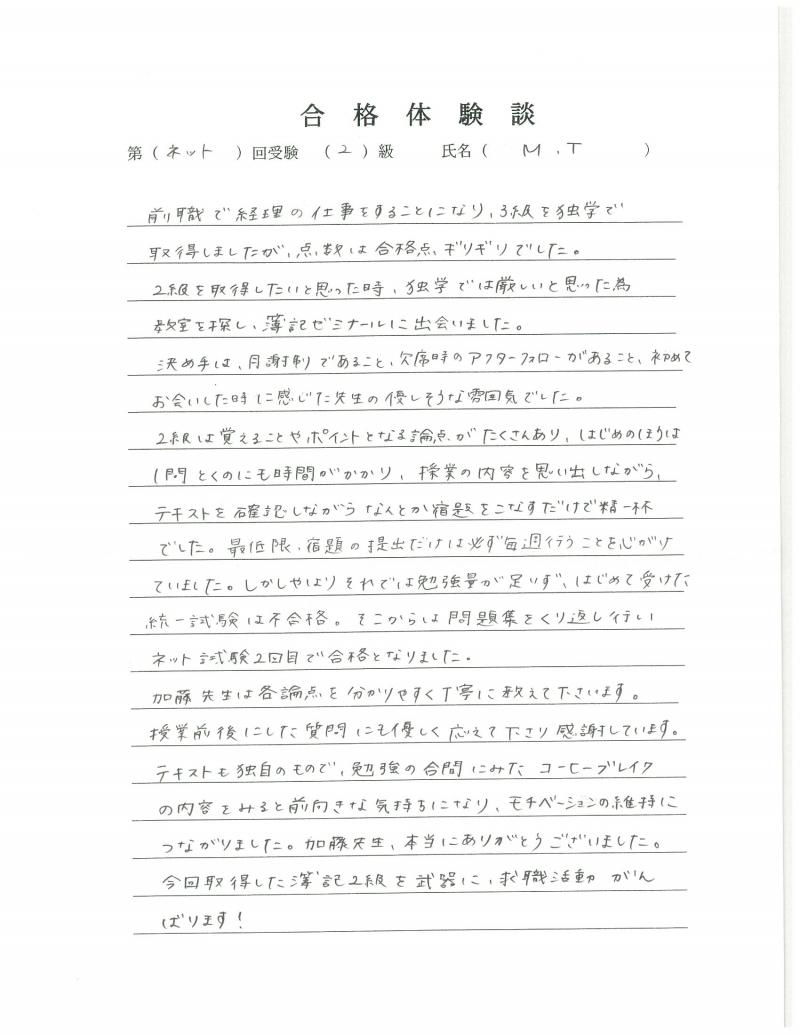 合格体験談
第（ネット）回受験 （2）級 氏名（ M.T ）
前職で経理の仕事をすることになり、3級を独学で
取得しましたが、点数は合格点ギリギリでした。
2級を取得したいと思った時、独学では厳しいと思った為
教室を探し、簿記ゼミナールに出会いました。
決め手は、月謝制であること、欠席時のアフターフォローがあること、初めて
お会いした時に感じた先生の優しそうな雰囲気でした。
2級は覚えることやポイントとなる論点がたくさんあり、はじめのほうは
1問とくのにも時間がかかり、授業の内容を思い出しながら、
テキストを確認しながらなんとか宿題をこなすだけで精一杯
でした。最低限、宿題の提出だけは必ず毎週行うことを心がけ
ていました。しかしやはりそれでは勉強量が足りず、はじめて受けた
統一試験は不合格。そこからは問題集をくり返し行い
ネット試験2回目で合格となりました。
加藤先生は各論点を分かりやすく丁寧に教えて下さいます。
授業前後にした質問にも優しく応えて下さり感謝しています。
テキストも独自のもので、勉強の合間にみたコーヒーブレイク
の内容をみると前向きな気持ちになり、モチベーションの維持に
つながりました。加藤先生、本当にありがとうございました。
今回取得した簿記2級を武器に、求職活動がん
ばります！